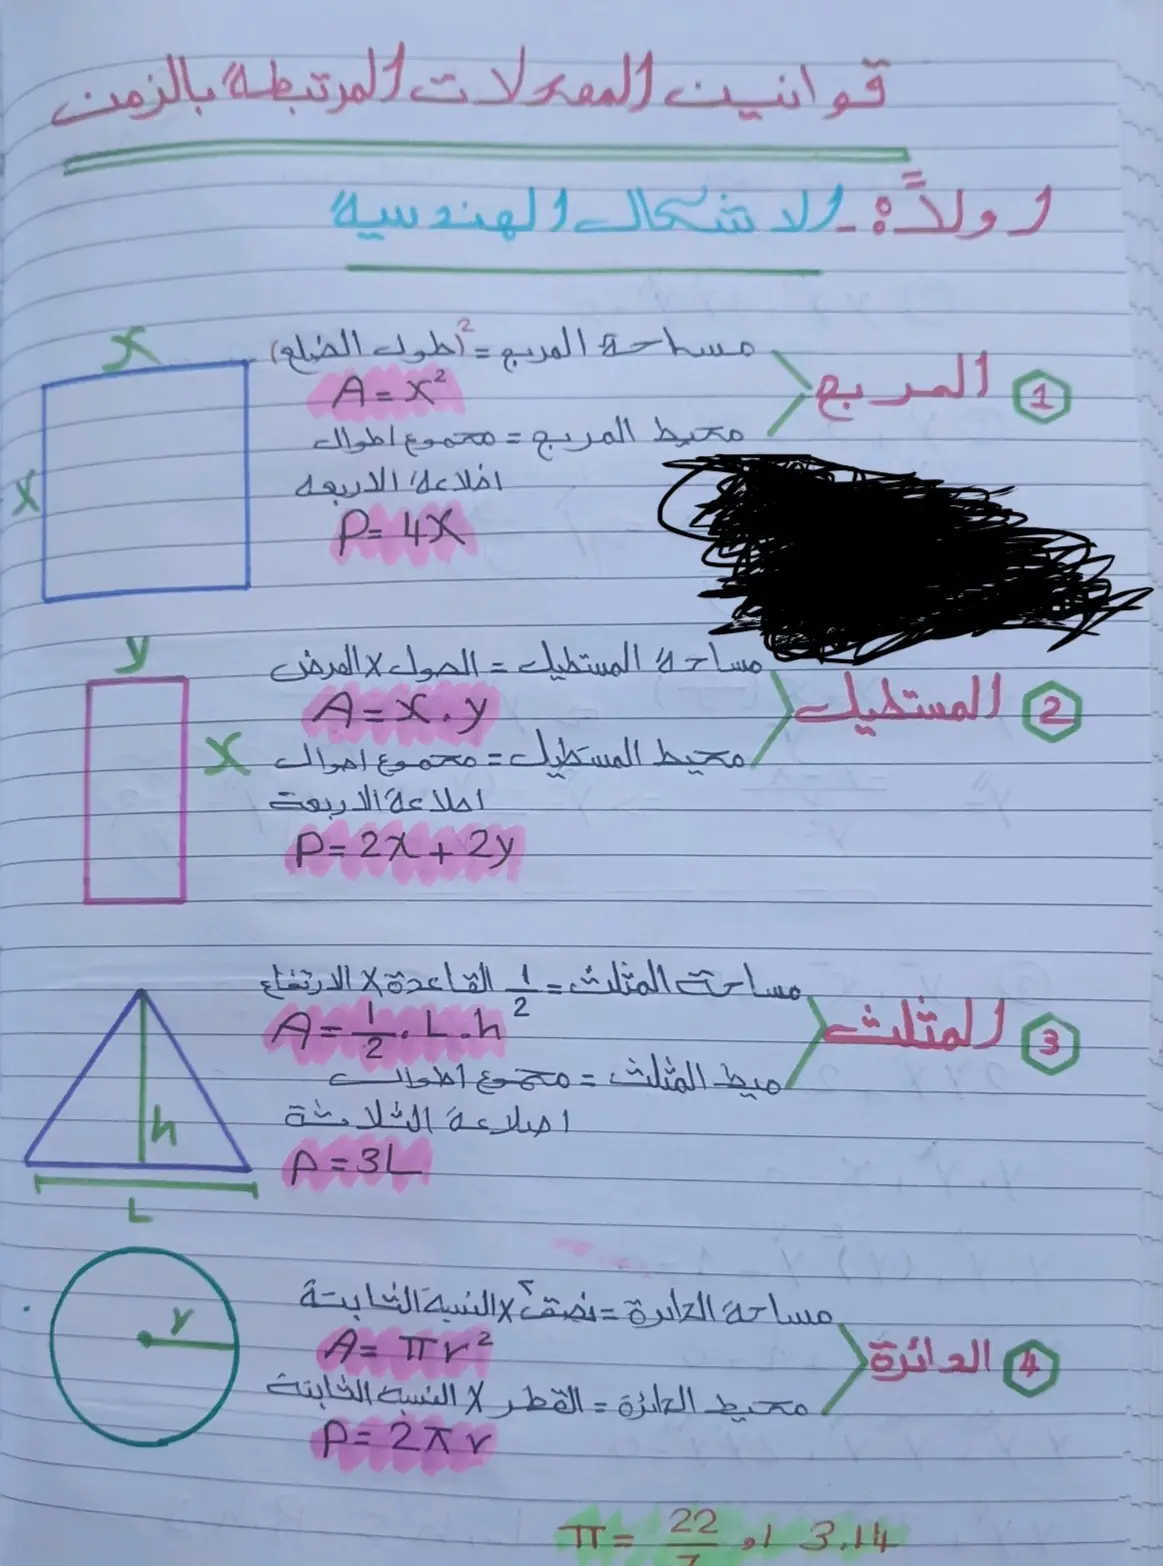 قوانين المعدلات المرتبطة بالزمن
اولاً :- الاشكال الهندسية
1 المربع
مساحة المربع = (طول الضلع)²
A = x²
محيط المربع = مجموع اطوال
اضلاعة الاربعه
P = 4x
x
x
2 المستطيل
مساحة المستطيل = الطول x العرض
A = x . y
محيط المستطيل = مجموع اطوال
اضلاعة الاربعة
P = 2x + 2y
y
x
3 المثلث
مساحة المثلث = 1/2 القاعدة x الارتفاع
A = 1/2 . L . h
ميط المثلث = مجموع اطوال
اضلاعة الثلاثة
P = 3L
h
L
4 الدائرة
مساحة الدائرة = نصق² x النسبة الثابتة
A = πr²
محيط الدائرة = القطر x النسبة الثابتة
P = 2πr
r
π = 22/7 او 3.14